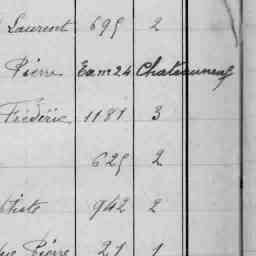 Laurent 695 2
Pierre Exm 24 Chateauneuf
Frédéric 1181 3
625 2
942 2
Pierre 21 1